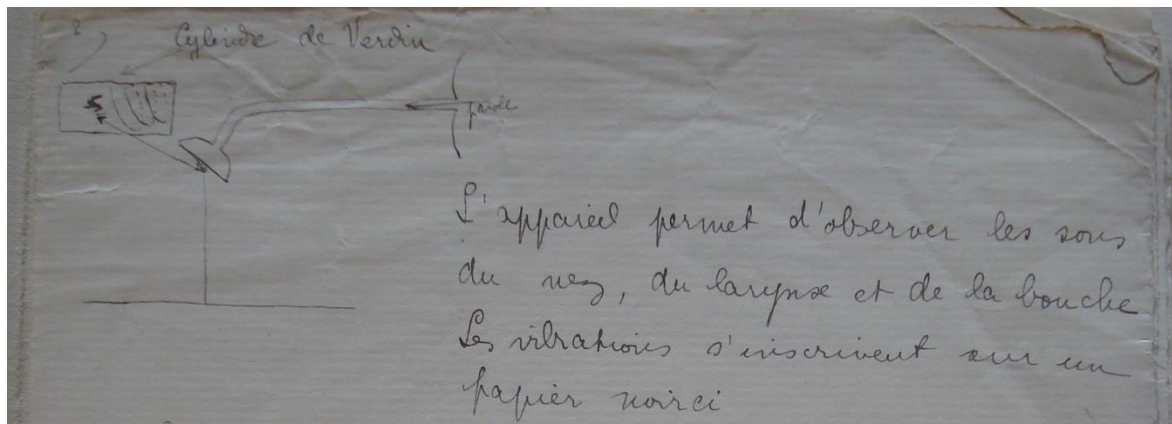 2)
Cylindre de Verdin
parole
L'appareil permet d'observer les sons
du nez, du larynx et de la bouche
Les vibrations s'inscrivent sur un
papier noirci